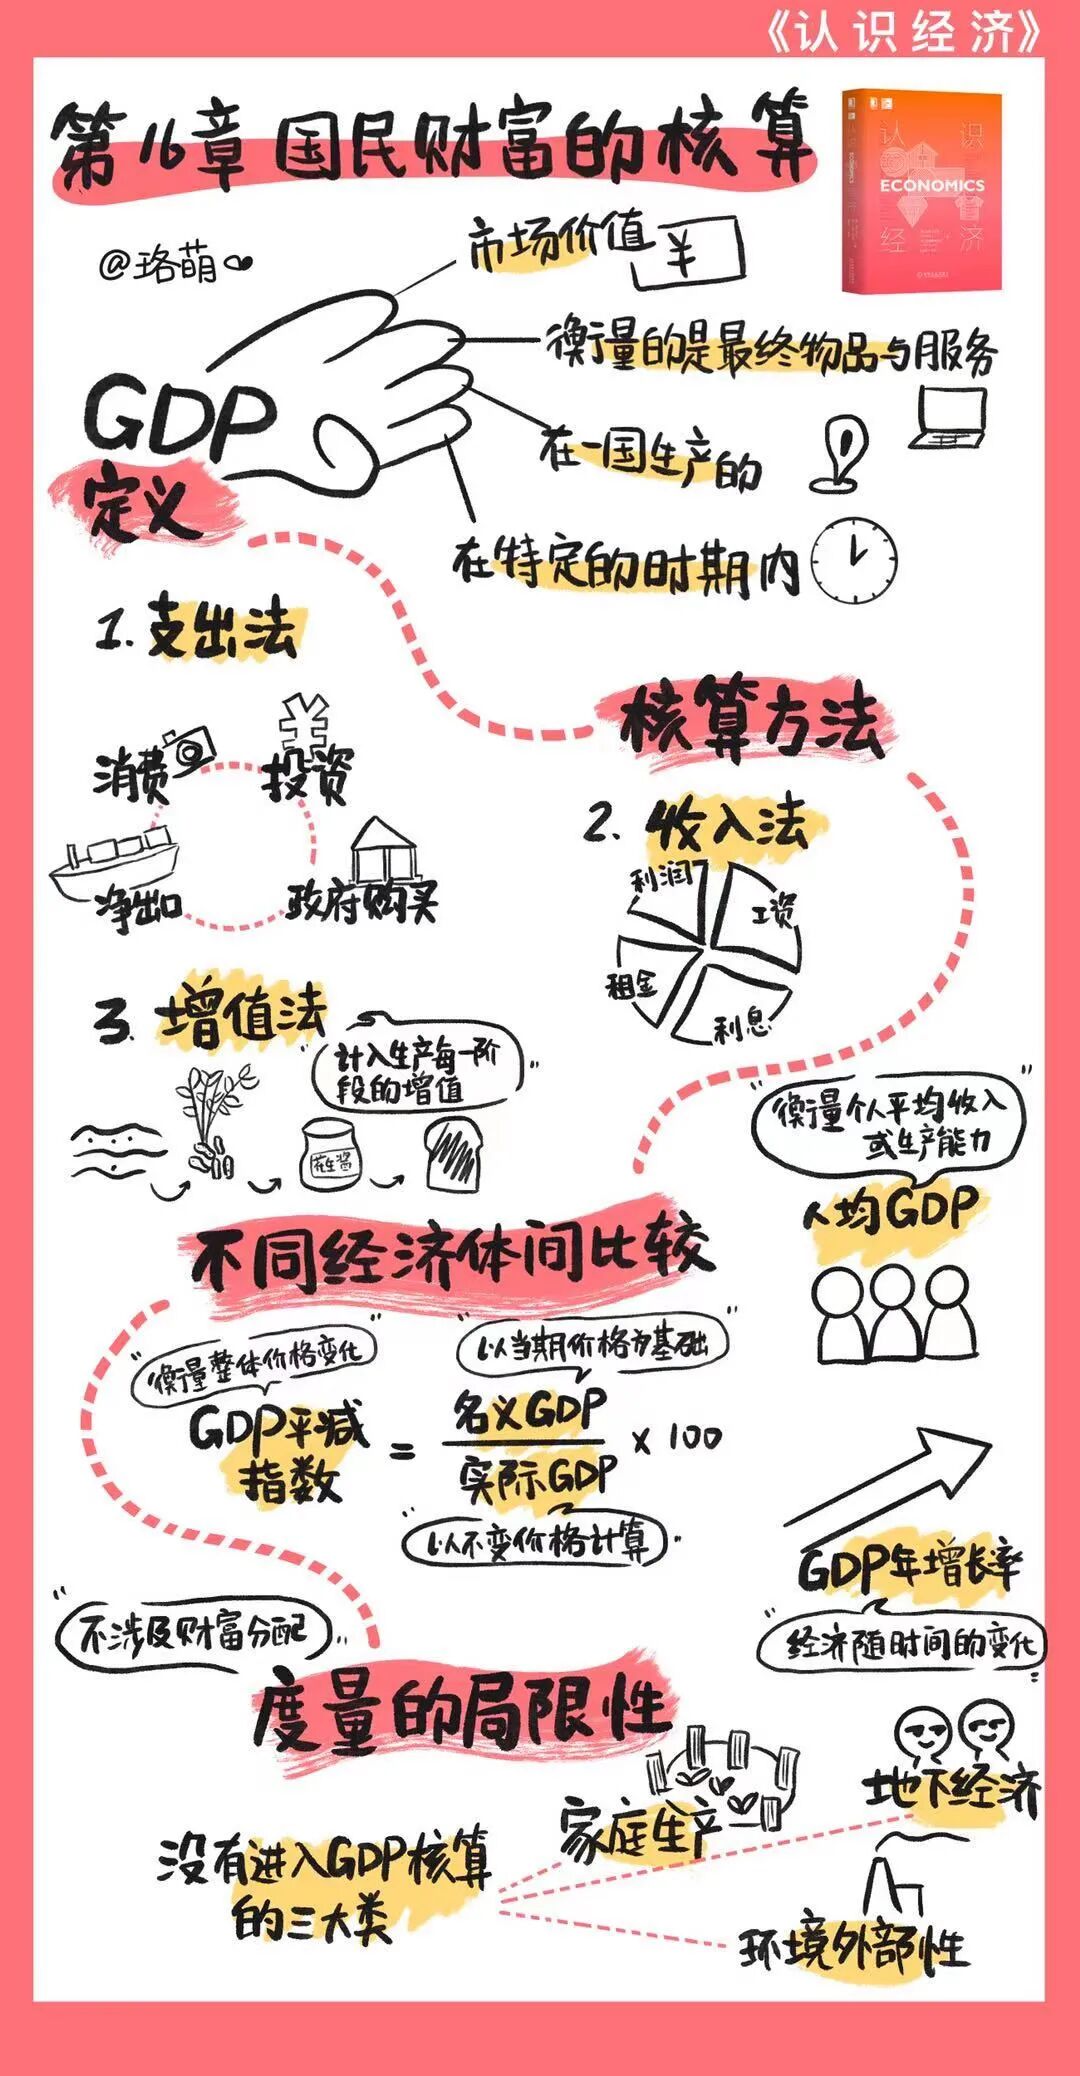 《认识经济》
第16章 国民财富的核算
认识
ECONOMICS
经济
@珞萌
市场价值
¥
衡量的是最终物品与服务
GDP
在一国生产的
定义
在特定的时期内
1. 支出法
核算方法
消费
投资
净出口
政府购买
2. 收入法
利润
工资
租金
利息
3. 增值法
"计入生产每一阶
段的增值"
花生酱
"衡量个人平均收入
或生产能力"
人均GDP
不同经济体间比较
"衡量整体价格变化"
"以当期价格为基础"
GDP平减
指数
=
名义GDP
实际GDP
x 100
"以不变价格计算"
GDP年增长率
"经济随时间的变化"
"不涉及财富分配"
度量的局限性
地下经济
家庭生产
没有进入GDP核算
的三大类
环境外部性